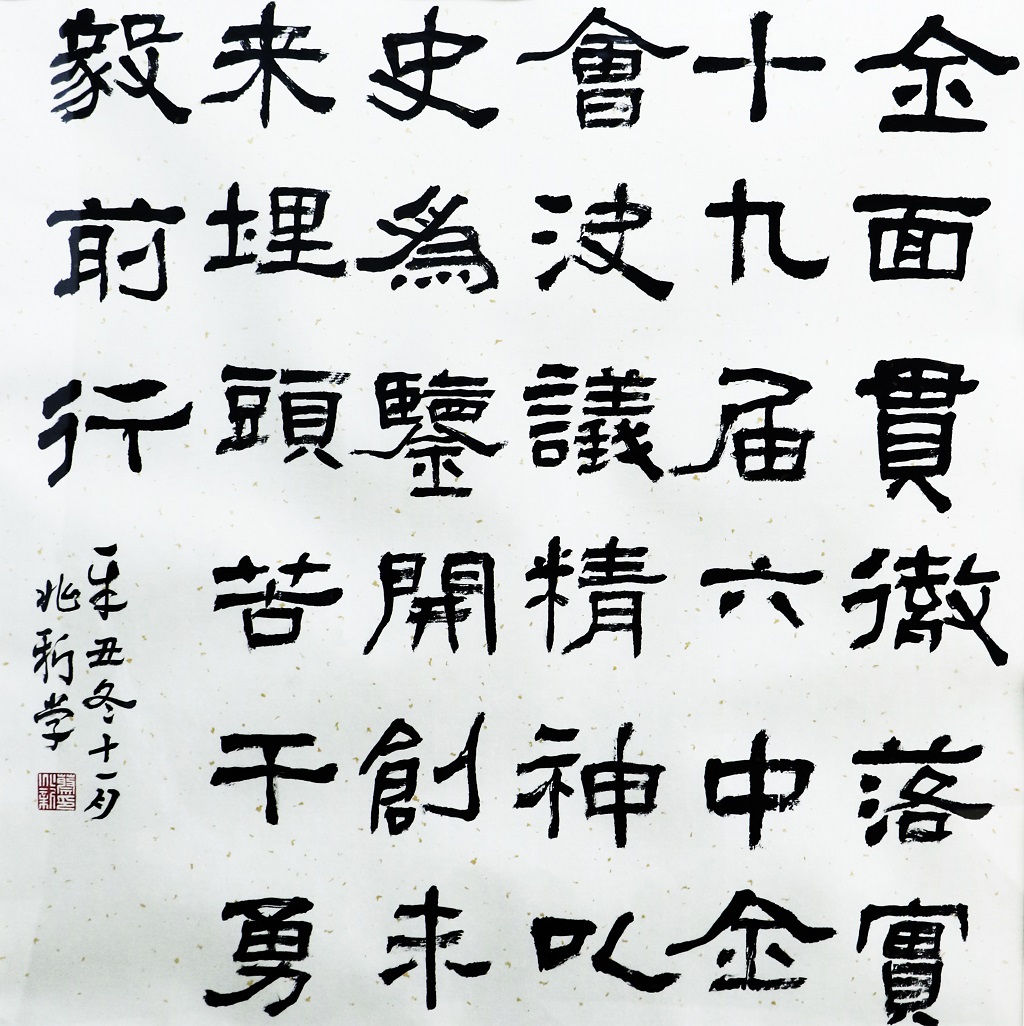 金面貫徹落實
十九届六中金
會決議精神以
史爲鑒開創未
来埋頭苦干勇
毅前行
辛丑冬十一月
兆新学